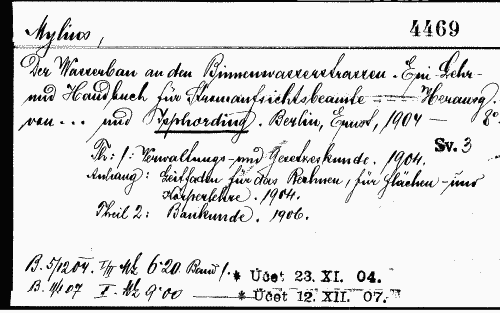 Mylius,
4469
Der Wasserbau an den Binnenwasserstrassen. Ein Lehr-
und Handbuch für Stromaufsichtsbeamte --- Herausg.
von ... und Isphording. Berlin, Ernst, 1904 — 8°
Sv. 3
Th: 1: Verwaltungs- und Gesetzeskunde. 1904.
Anhang: Leitfaden für das Rechnen, für Flächen- und
Körperlehre. 1904.
Theil 2: Baukunde. 1906.
B. 5/12 04. I/II Mk 6·20 Band 1. * Účet 23. XI. 04.
B. 11/1 07 II. Mk 9·00 — * Účet 12. XII. 07.